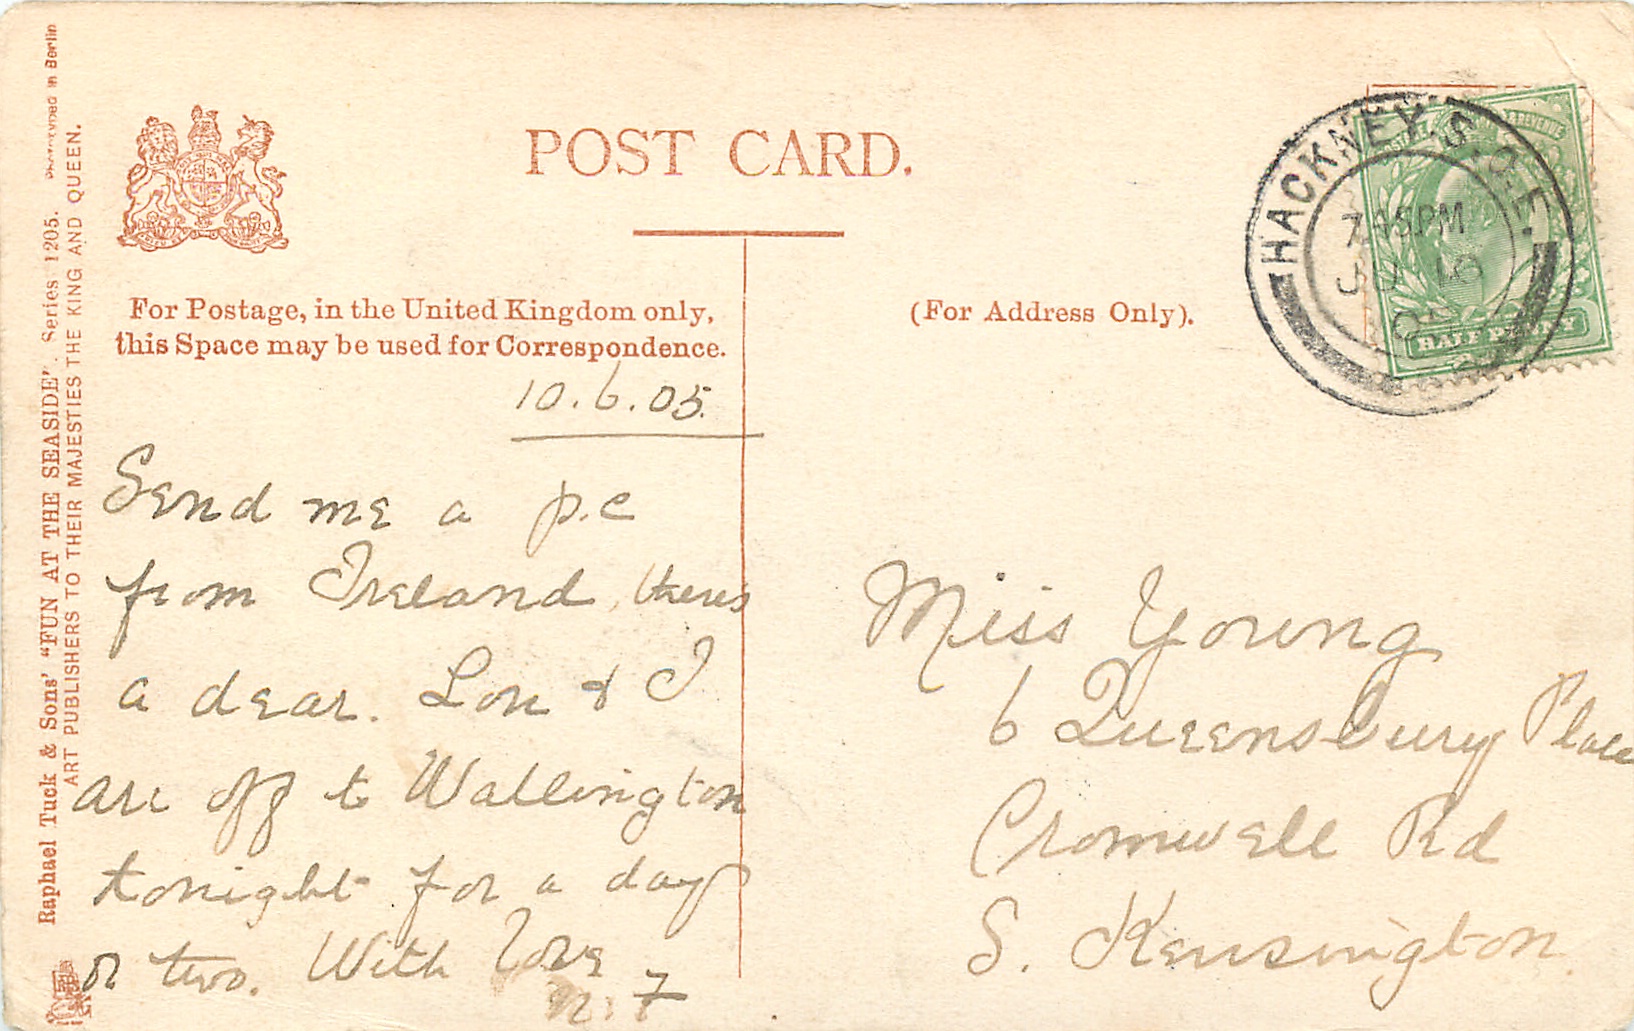 POST CARD.
For Postage, in the United Kingdom only,
this Space may be used for Correspondence.
(For Address Only).
HACKNEY.S.O.E.
7.45PM
JU 10
05
HALF PENNY
10.6.05.
Send me a p.c
from Ireland, theres
a dear. Lou & I
are off to Wallington
tonight for a day
or two. With love
Miss Young
6 Queensbury Place
Cromwell Rd
S. Kensington.
Raphael Tuck & Sons' "FUN AT THE SEASIDE". Series 1205.
ART PUBLISHERS TO THEIR MAJESTIES THE KING AND QUEEN.
in Berlin